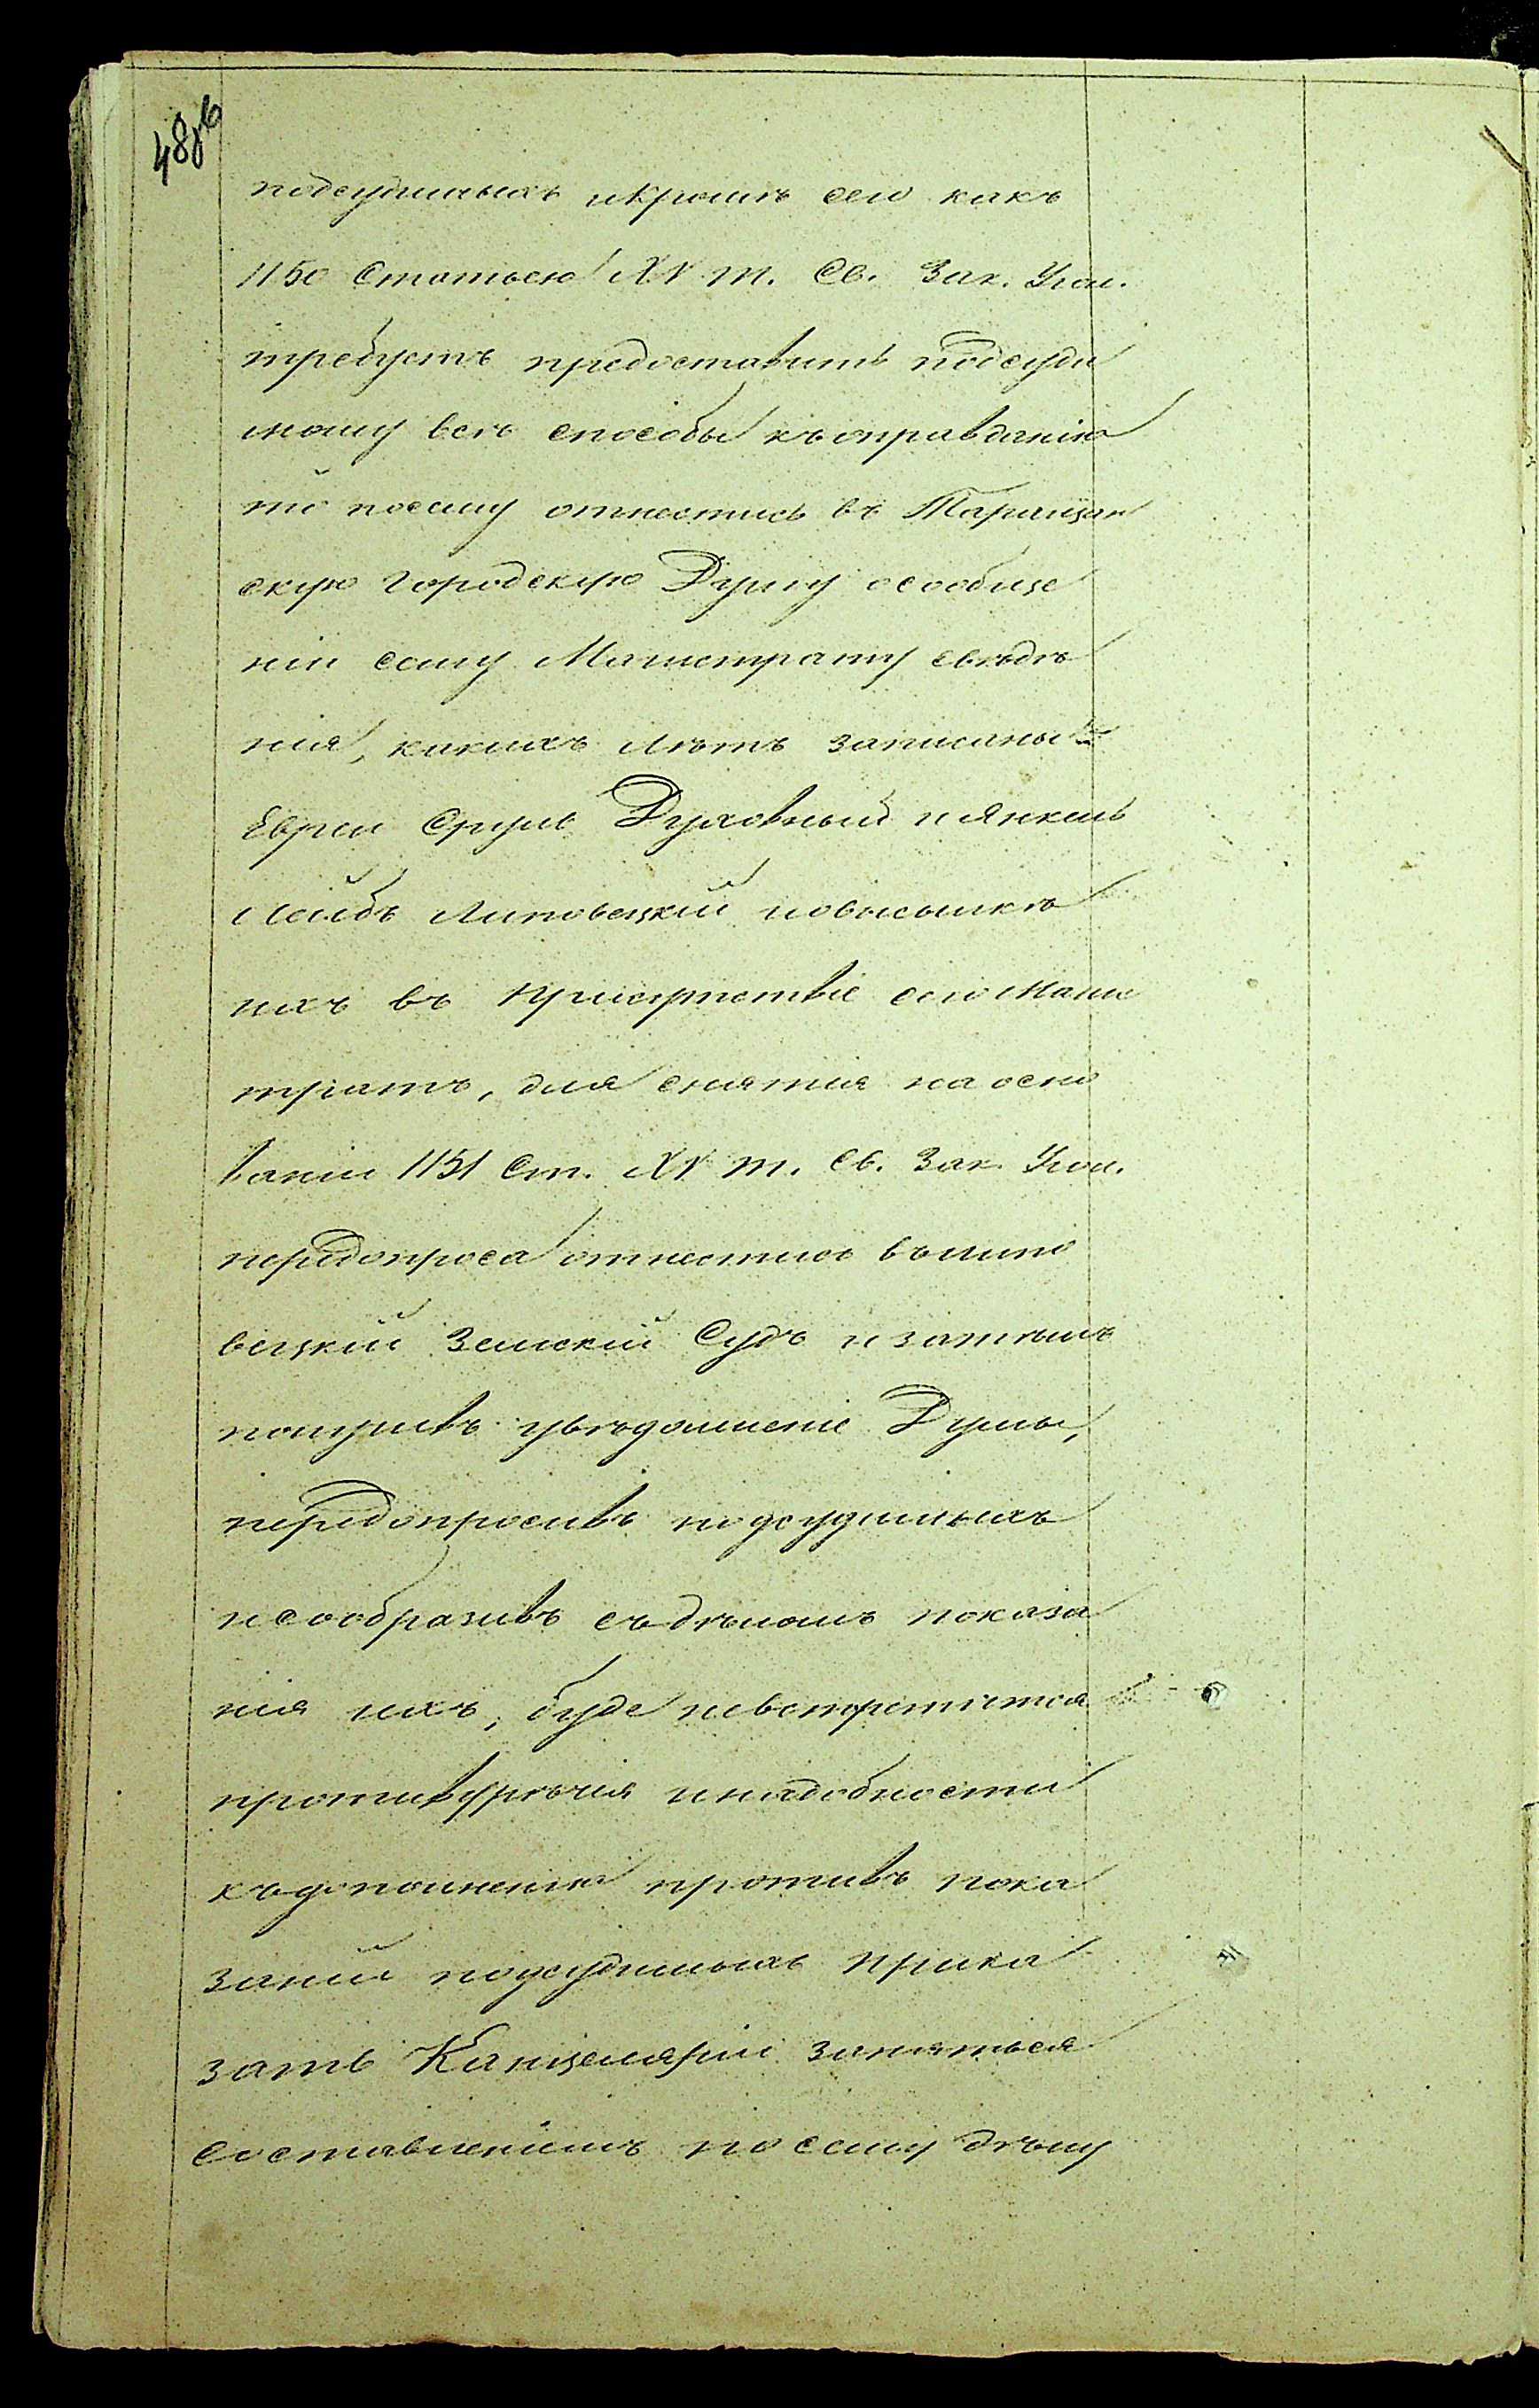 48об
подсудимыхъ икромѣ сего какъ
1150 Статьею XV т. Св. Зак. Угол.
требуетъ предоставить подсуди
мому всѣ способы къоправданію
то посему отнестись въ Таращан
скую Городскую Думу осообще
ніи сему Магистрату свѣдѣ
нія, какихъ лѣтъ записаны
Евреи Сруль Духовный и Янкель
Лейбъ Липовецкій иовысылкѣ
ихъ въ Присутствіе сего Магис
трата, для снятія на осно
ваніи 1151 Ст. XV т. Св. Зак. Угол.
передопроса отнестись вълипо
вецкій Земскій Судъ и затѣмъ
получивъ увѣдомленіе Думы,
передопросивъ подсудимыхъ
исообразивъ съдѣломъ показа
нія ихъ, буде невстретится
противурѣчія инадобности
къдополненію противъ пока
заній подсудимыхъ прика
зать Канцеляріи заняться
составленіемъ по сему дѣлу